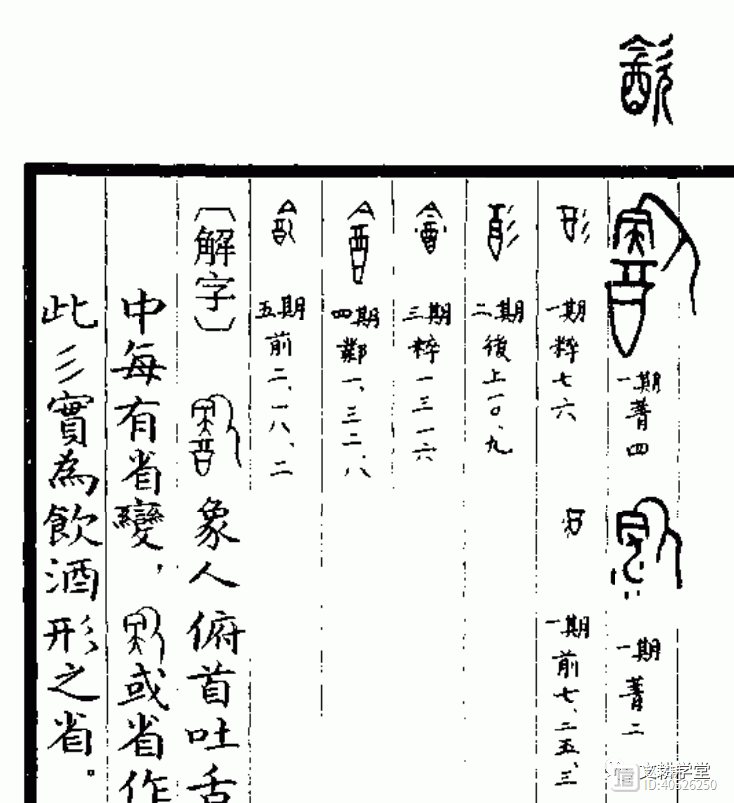 一期菁四
一期菁二
一期粹七六
一期前七、二五、三
二期後上一〇、九
三期粹一三一六
四期鄴一、三二、八
五期前二、一八、二
〔解字〕象人俯首吐舌
中每有省變，或省作
此彡實為飲酒形之省。
文耕学堂
ID:40526250